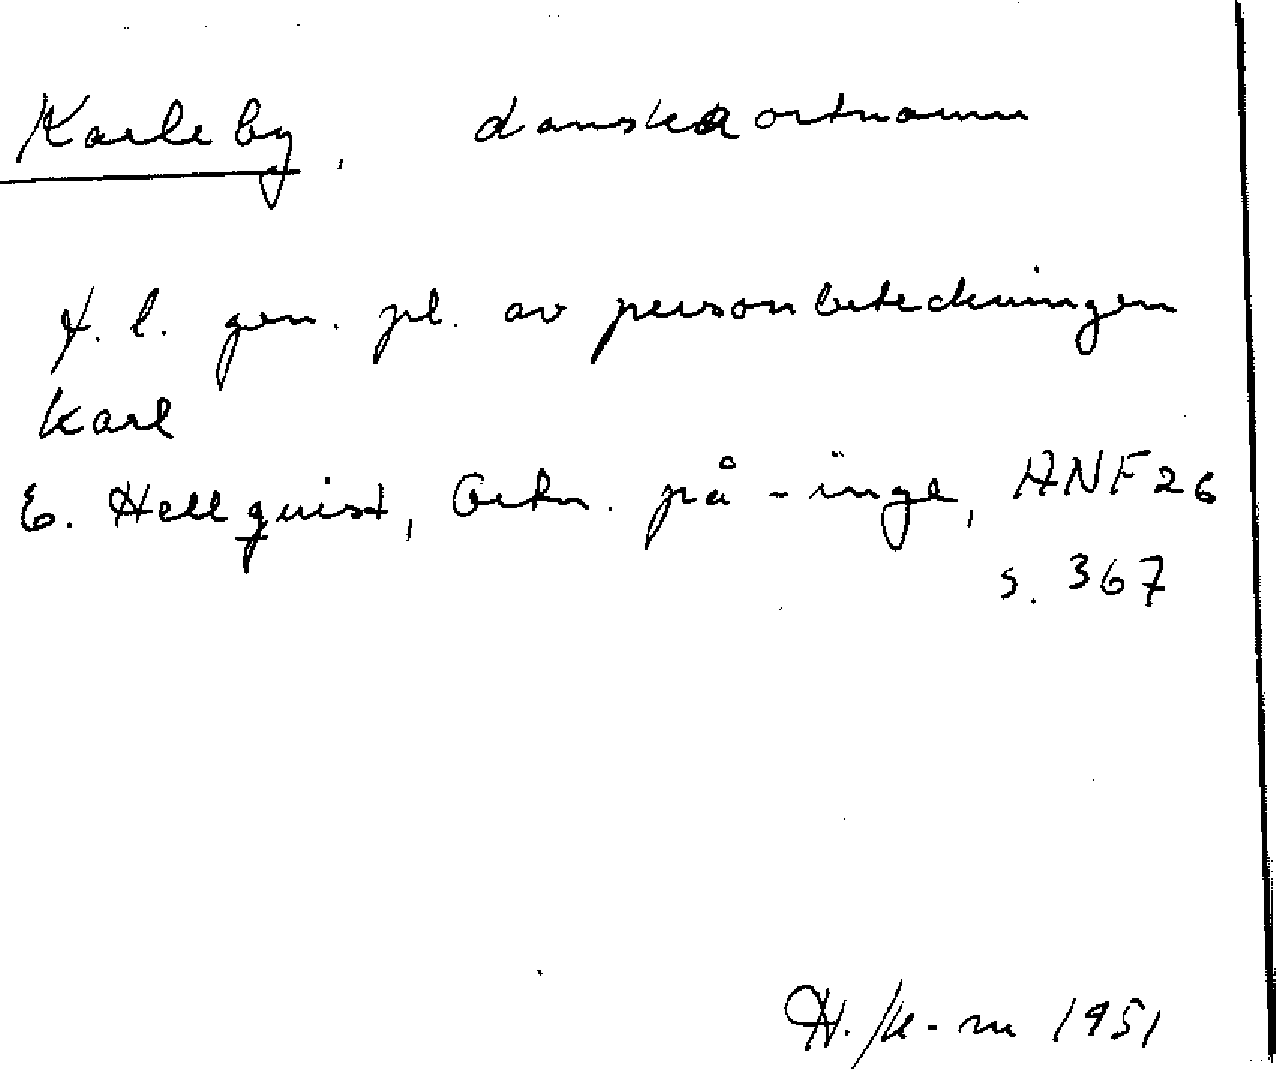 Karleby, danska ortnamn
f. l. gen. pl. av personbeteckningen
karl
E. Hellquist, Ortn. på -inge, ANF 26
s. 367
H. 1951